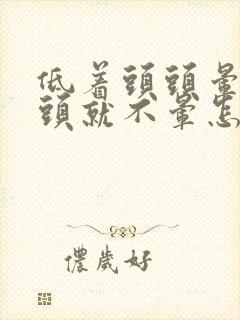 低着頭頭暈
頭就不暈怎
儂歲好